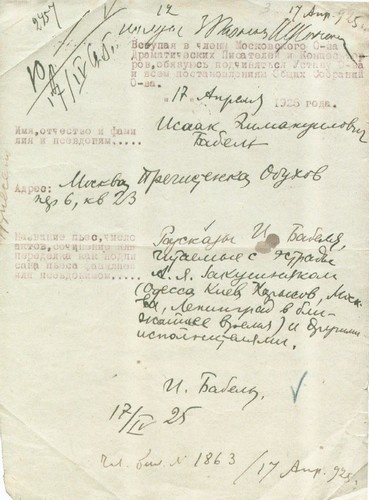 2457
12
17 Апр. 925г.
17/IV
Вступая в члены Московского О-ва
Драматических Писателей и Композито-
ров, обязуюсь подчиняться Уставу О-ва
и всем постановлениям Общих Собраний
О-ва.
17 Апреля 1925 года.
Имя, отчество и фами
лия и псевдоним.....
Исаак Эммануилович
Бабель
Адрес: Москва Пречистенка Обухов
пер 6, кв 23
Название пьес, число
актов,
псевдонимом.....
Рассказы И. Бабеля,
читаемые с эстрады
А. Я. Закушняком
(Одесса Киев Харьков, Моск-
ва, Ленинград в бли-
жайшее время) и другими
исполнителями.
И. Бабель
17/IV 25
Чл. бил. № 1863 / 17 Апр. 925г.